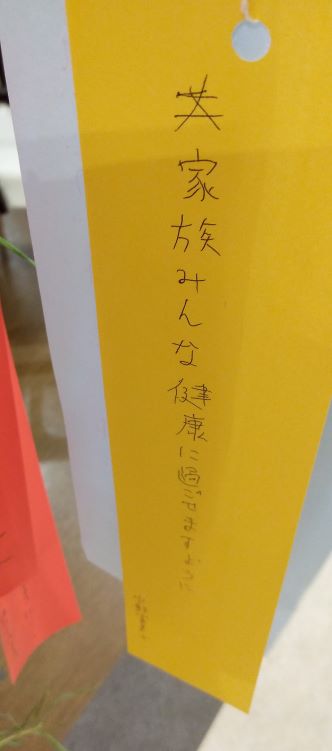 家族みんな健康に過ごせますように